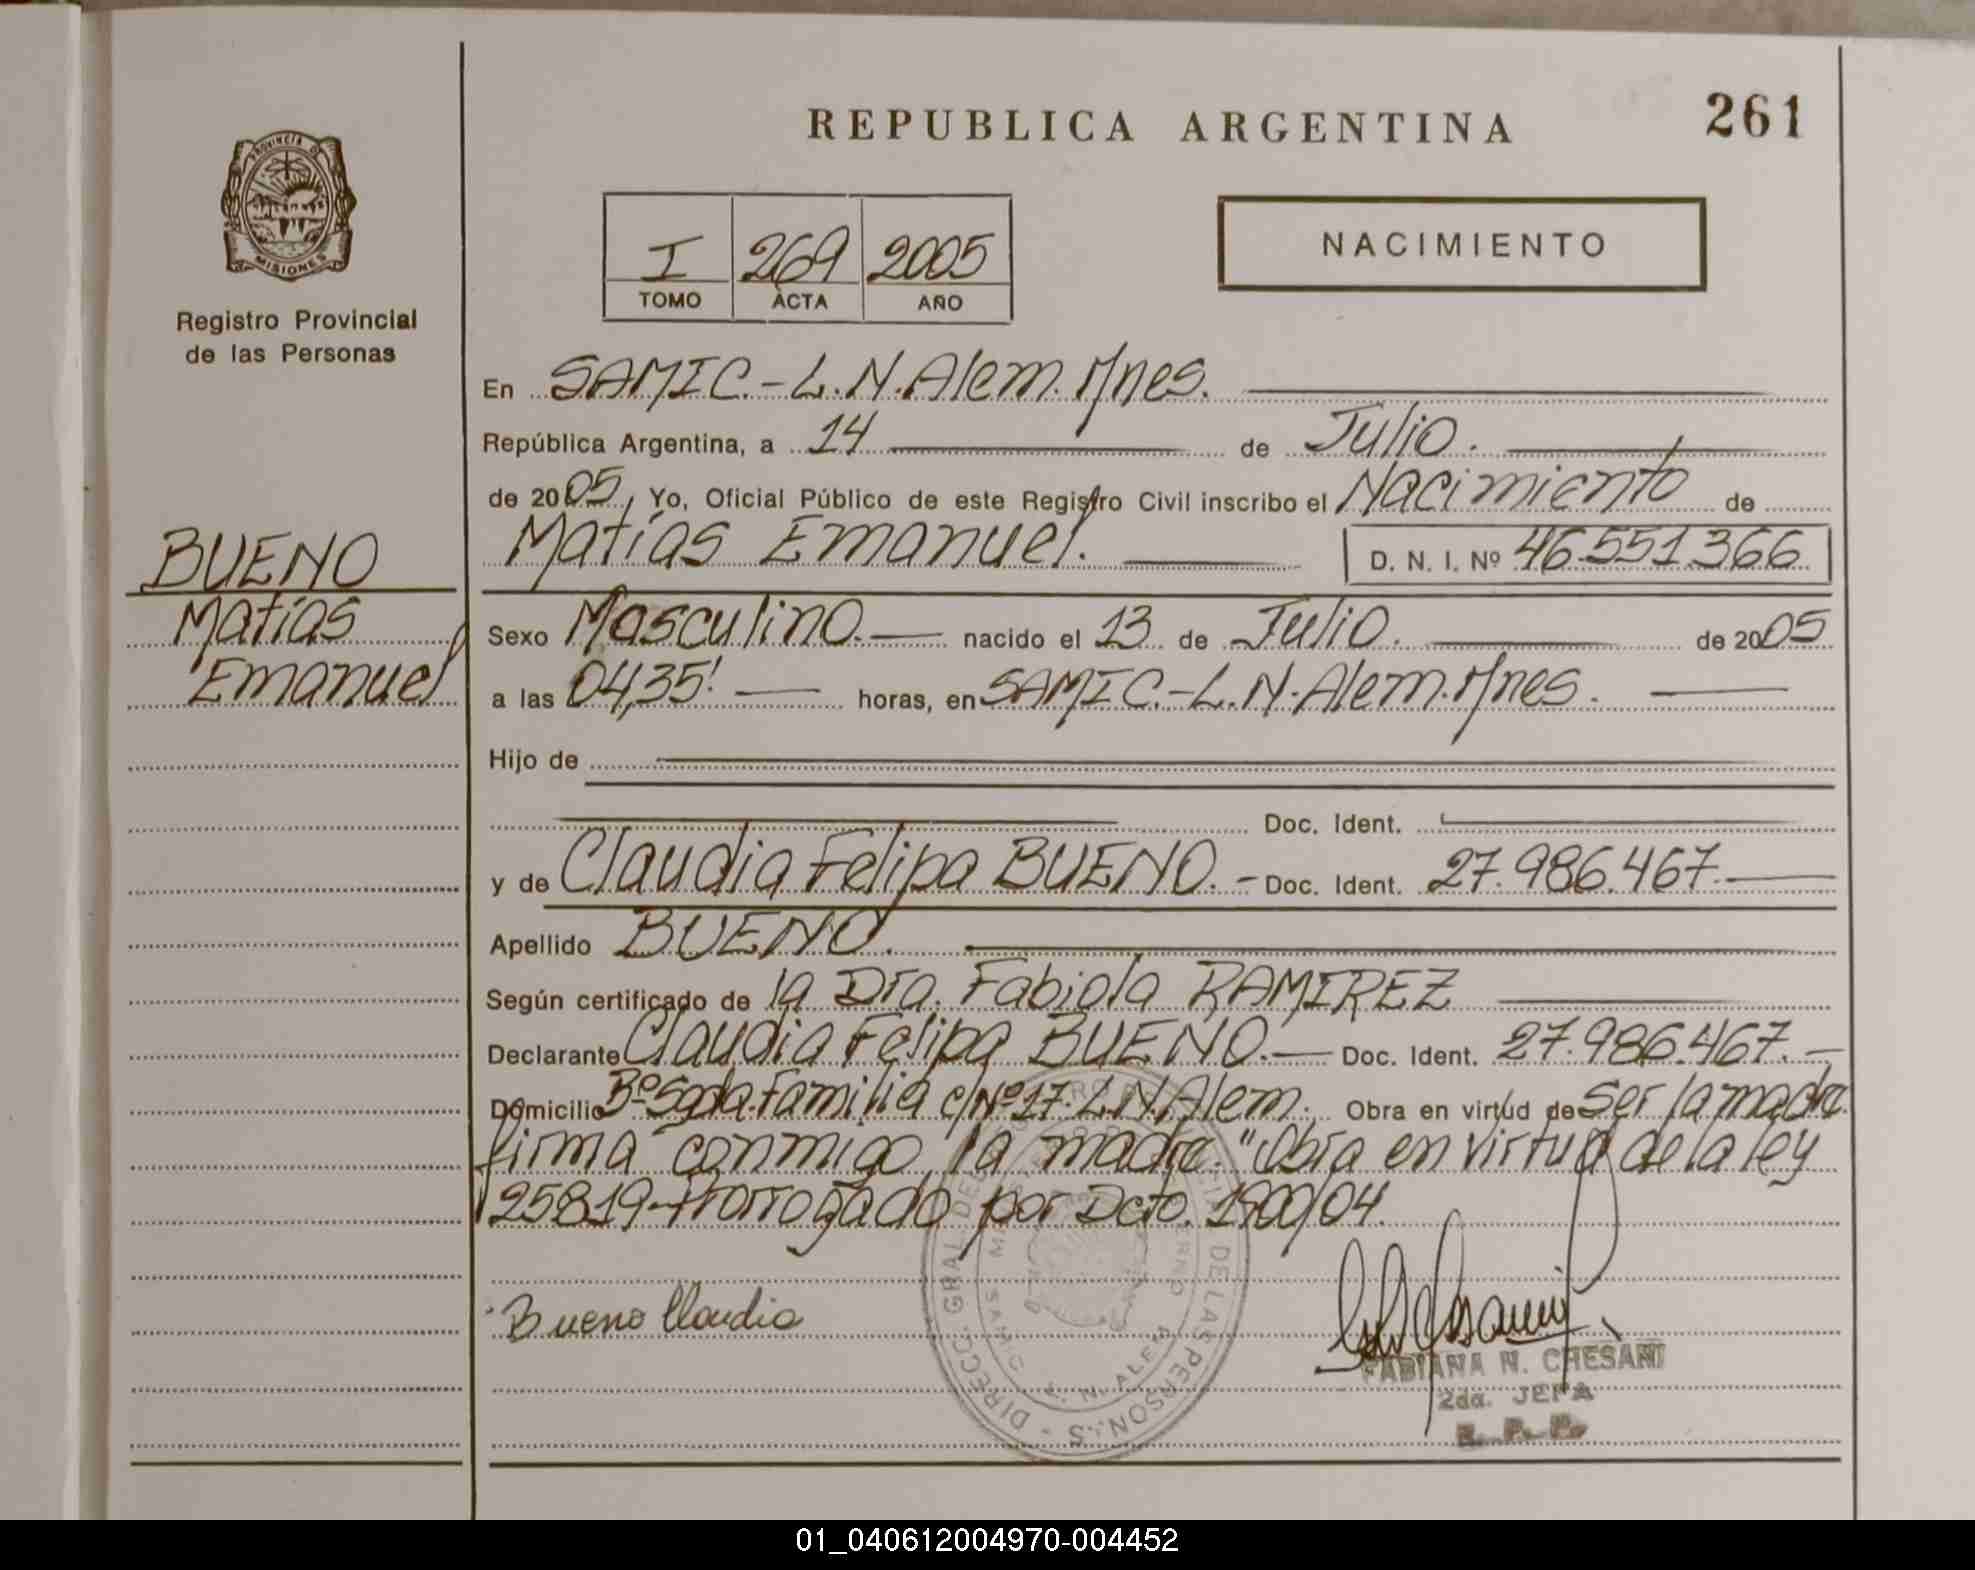 REPUBLICA ARGENTINA
261
PROVINCIA DE
MISIONES
Registro Provincial
de las Personas
I 269 2005
TOMO ACTA AÑO
NACIMIENTO
En SAMIC.-L.N.Alem.Mnes.
República Argentina, a 14 de Julio.
de 2005, Yo, Oficial Público de este Registro Civil inscribo el Nacimiento de
Matías Emanuel. D. N. I. Nº 46.551.366
BUENO
Matías
Emanuel
Sexo Masculino.- nacido el 13 de Julio. de 2005
a las 04,35'. horas, en SAMIC.-L.N.Alem.Mnes.
Hijo de
Doc. Ident.
y de Claudia Felipa BUENO.- Doc. Ident. 27.986.467.
Apellido BUENO.
Según certificado de la Dra. Fabiola RAMIREZ
Declarante Claudia Felipa BUENO.- Doc. Ident. 27.986.467.-
Domicilio Bº Sgda.Familia c/Nº17.L.N.Alem. Obra en virtud de ser la madre.
firma conmigo la madre. "Obra en virtud de la ley
25819-Prorrogado por Dcto. 1900/04.
Bueno Claudia
L. N. ALEM
FABIANA N. CHESANI
2da. JEFA
R. P. P.
01_040612004970-004452